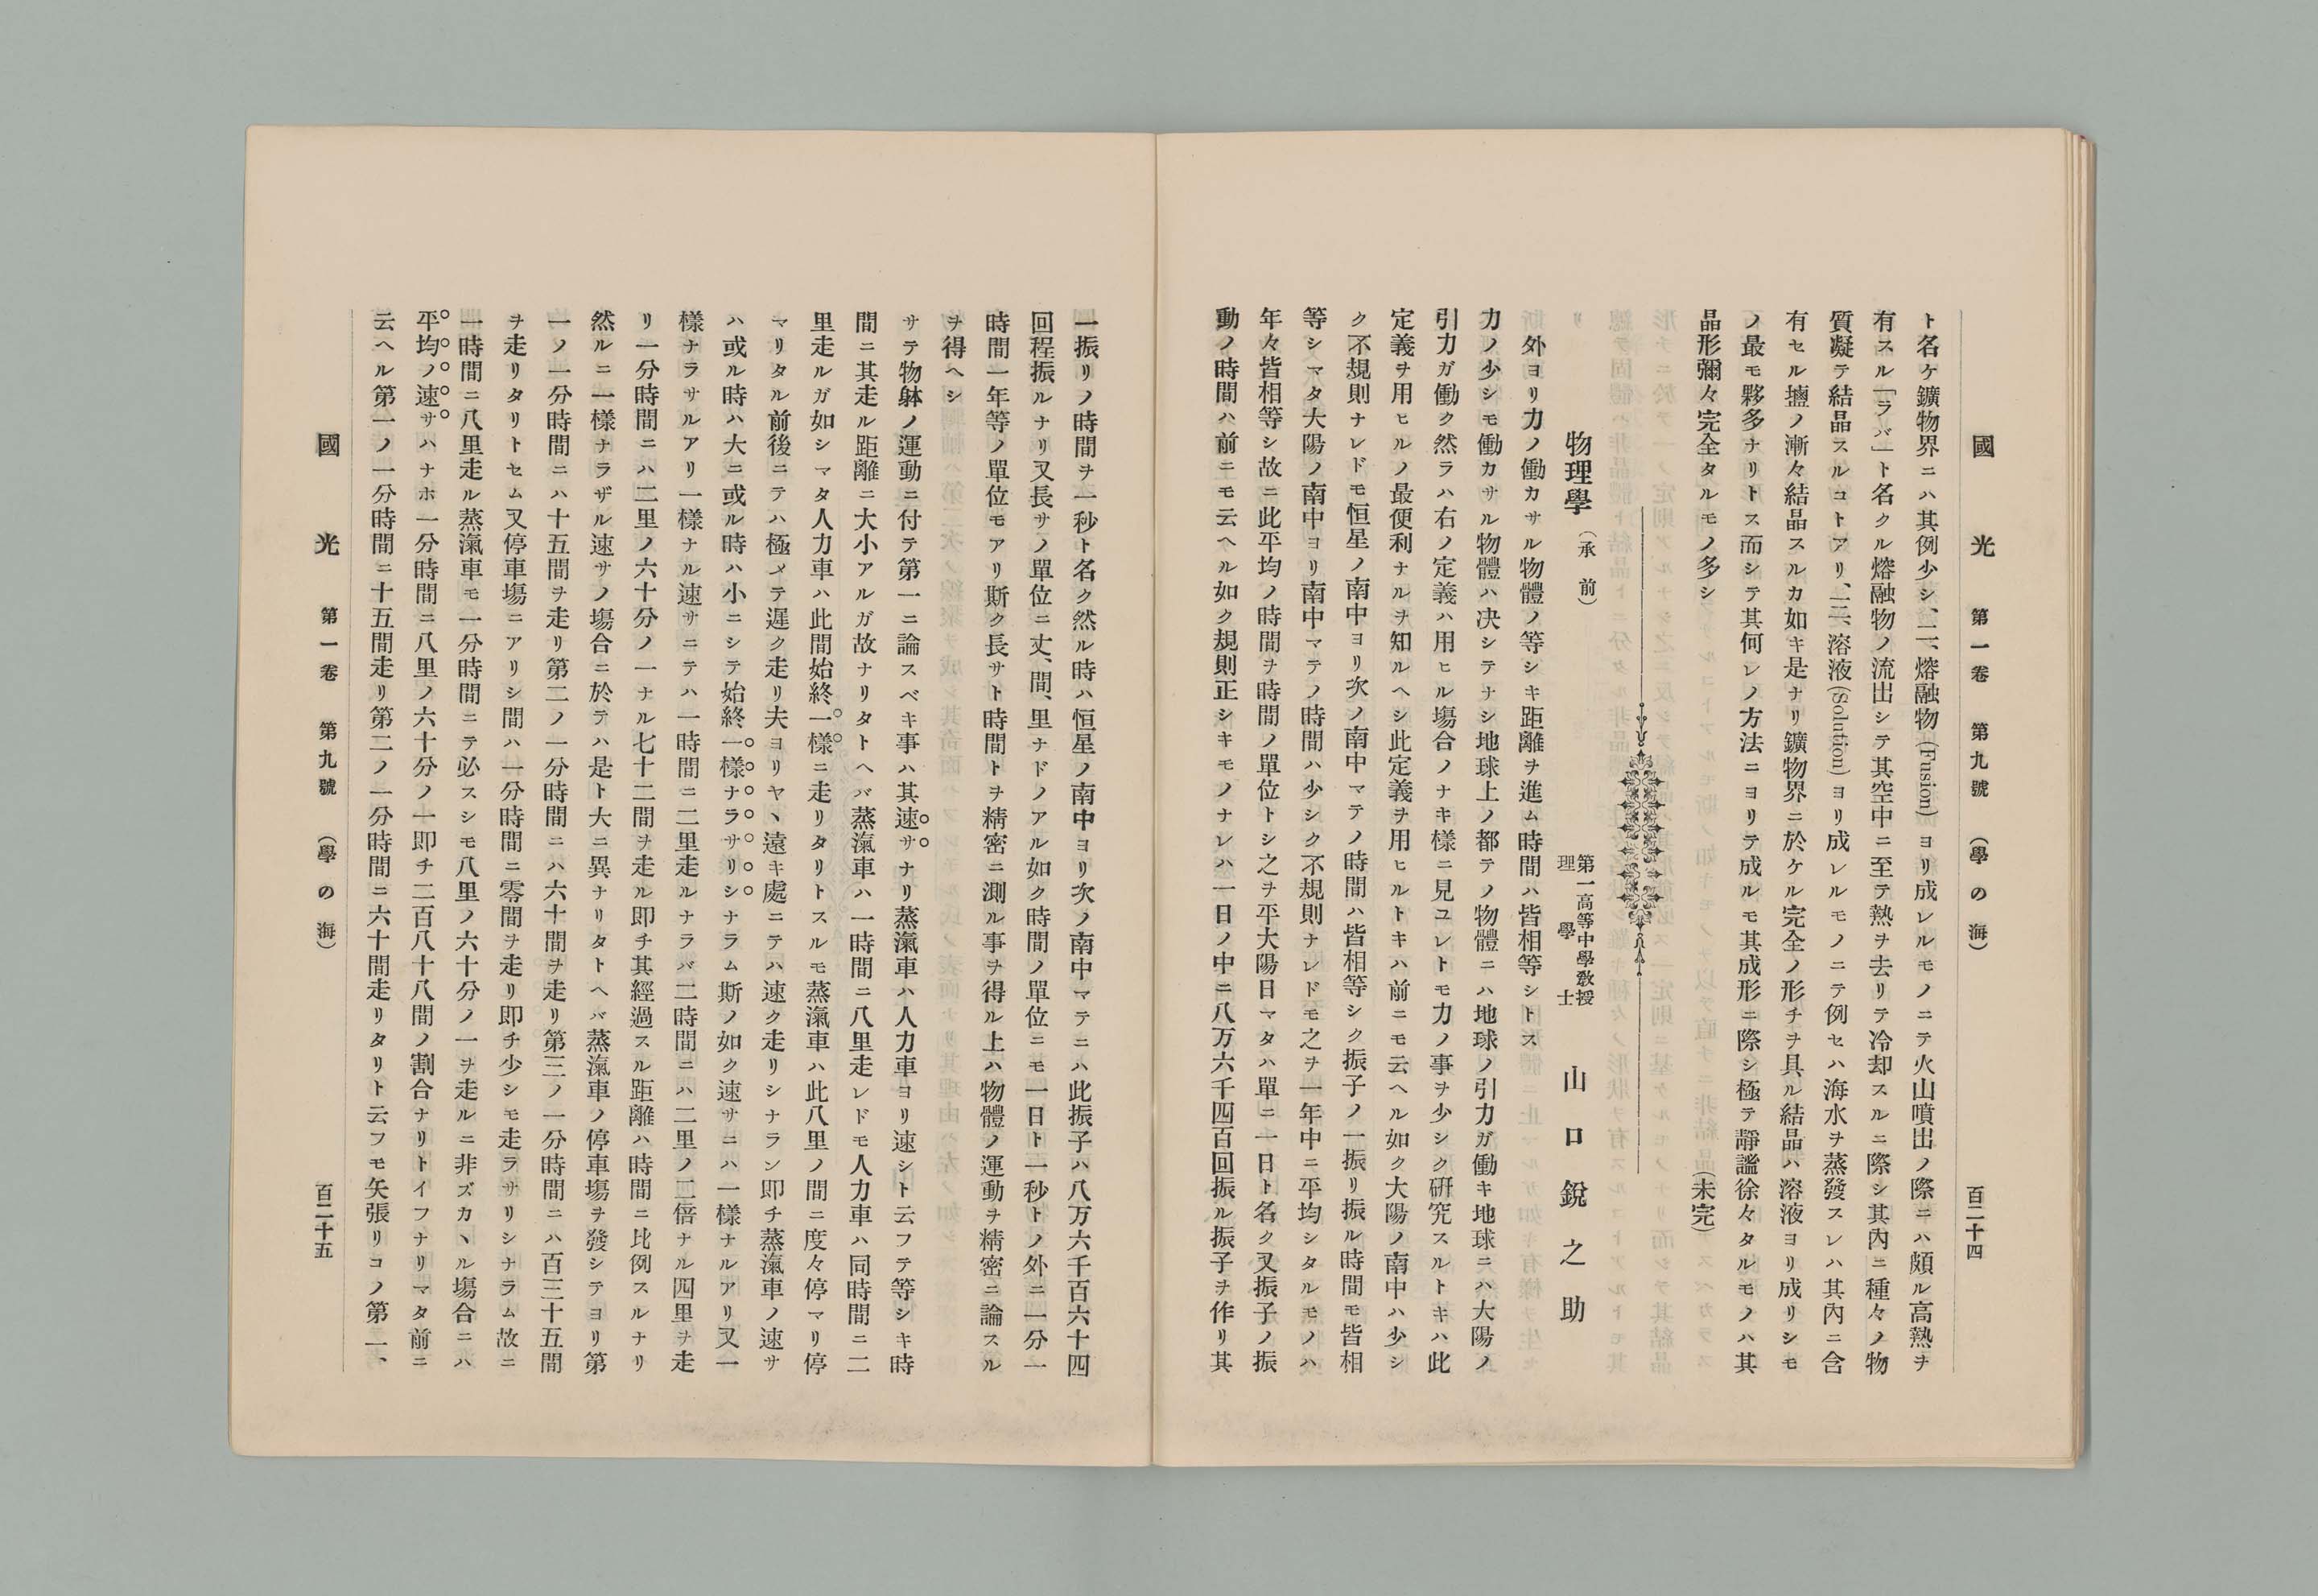 國光 第一卷 第九號 (學の海) 百二十四
ト名ケ鑛物界ニハ其例少シ、二、熔融物(Fusion)ヨリ成レルモノニテ火山噴出ノ際ニハ頗ル高熱ヲ
有スル「ラバ」ト名クル熔融物ノ流出シテ其空中ニ至テ熱ヲ去リテ冷却スルニ際シ其內ニ種々ノ物
質凝テ結晶スルコトアリ、三、溶液(Solution)ヨリ成レルモノニテ例セハ海水ヲ蒸發スレハ其內ニ含
有セル鹽ノ漸々結晶スルカ如キ是ナリ鑛物界ニ於ケル完全ノ形チヲ具ル結晶ハ溶液ヨリ成リシモ
ノ最モ夥多ナリトス而シテ其何レノ方法ニヨリテ成ルモ其成形ニ際シ極テ靜謐徐々タルモノハ其
晶形彌々完全タルモノ多シ (未完)
物理學 (承前)
第一高等中學敎授
理學士
山口銳之助
外ヨリ力ノ働カサル物體ノ等シキ距離ヲ進ム時間ハ皆相等シトス
力ノ少シモ働カサル物體ハ决シテナシ地球上ノ都テノ物體ニハ地球ノ引力ガ働キ地球ニハ大陽ノ
引力ガ働ク然ラハ右ノ定義ハ用ヒル塲合ノナキ樣ニ見ユレトモ力ノ事ヲ少シク研究スルトキハ此
定義ヲ用ヒルノ最便利ナルヲ知ルヘシ此定義ヲ用ヒルトキハ前ニモ云ヘル如ク大陽ノ南中ハ少シ
ク不規則ナレドモ恒星ノ南中ヨリ次ノ南中マテノ時間ハ皆相等シク振子ノ一振リ振ル時間モ皆相
等シマタ大陽ノ南中ヨリ南中マテノ時間ハ少シク不規則ナレドモ之ヲ一年中ニ平均シタルモノハ
年々皆相等シ故ニ此平均ノ時間ヲ時間ノ單位トシ之ヲ平大陽日マタハ單ニ一日ト名ク又振子ノ振
動ノ時間ハ前ニモ云ヘル如ク規則正シキモノナレハ一日ノ中ニ八万六千四百回振ル振子ヲ作リ其
一振リノ時間ヲ一秒ト名ク然ル時ハ恒星ノ南中ヨリ次ノ南中マテニハ此振子ハ八万六千百六十四
回程振ルナリ又長サノ單位ニ丈、間、里ナドノアル如ク時間ノ單位ニモ一日ト一秒トノ外ニ一分一
時間一年等ノ單位モアリ斯ク長サト時間トヲ精密ニ測ル事ヲ得ル上ハ物體ノ運動ヲ精密ニ論スル
ヲ得ヘシ
サテ物躰ノ運動ニ付テ第一ニ論スベキ事ハ其速サナリ蒸滊車ハ人力車ヨリ速シト云フテ等シキ時
間ニ其走ル距離ニ大小アルガ故ナリタトヘバ蒸滊車ハ一時間ニ八里走レドモ人力車ハ同時間ニ二
里走ルガ如シマタ人力車ハ此間始終一樣ニ走リタリトスルモ蒸滊車ハ此八里ノ間ニ度々停マリ停
マリタル前後ニテハ極メテ遲ク走リ夫ヨリヤヽ遠キ處ニテハ速ク走リシナラン即チ蒸滊車ノ速サ
ハ或ル時ハ大ニ或ル時ハ小ニシテ始終一樣ナラサリシナラム斯ノ如ク速サニハ一樣ナルアリ又一
樣ナラサルアリ一樣ナル速サニテハ一時間ニ二里走ルナラバ二時間ニハ二里ノ二倍ナル四里ヲ走
リ一分時間ニハ二里ノ六十分ノ一ナル七十二間ヲ走ル即チ其經過スル距離ハ時間ニ比例スルナリ
然ルニ一樣ナラザル速サノ塲合ニ於テハ是ト大ニ異ナリタトヘバ蒸滊車ノ停車塲ヲ發シテヨリ第
一ノ一分時間ニハ十五間ヲ走リ第二ノ一分時間ニハ六十間ヲ走リ第三ノ一分時間ニハ百三十五間
ヲ走リタリトセム又停車塲ニアリシ間ハ一分時間ニ零間ヲ走リ即チ少シモ走ラサリシナラム故ニ
一時間ニ八里走ル蒸滊車モ一分時間ニテ必スシモ八里ノ六十分ノ一ヲ走ルニ非ズカヽル塲合ニハ
平均ノ速サハナホ一分時間ニ八里ノ六十分ノ一即チ二百八十八間ノ割合ナリトイフナリマタ前ニ
云ヘル第一ノ一分時間ニ十五間走リ第二ノ一分時間ニ六十間走リタリト云フモ矢張リコノ第一、
國光 第一卷 第九號 (學の海) 百二十五